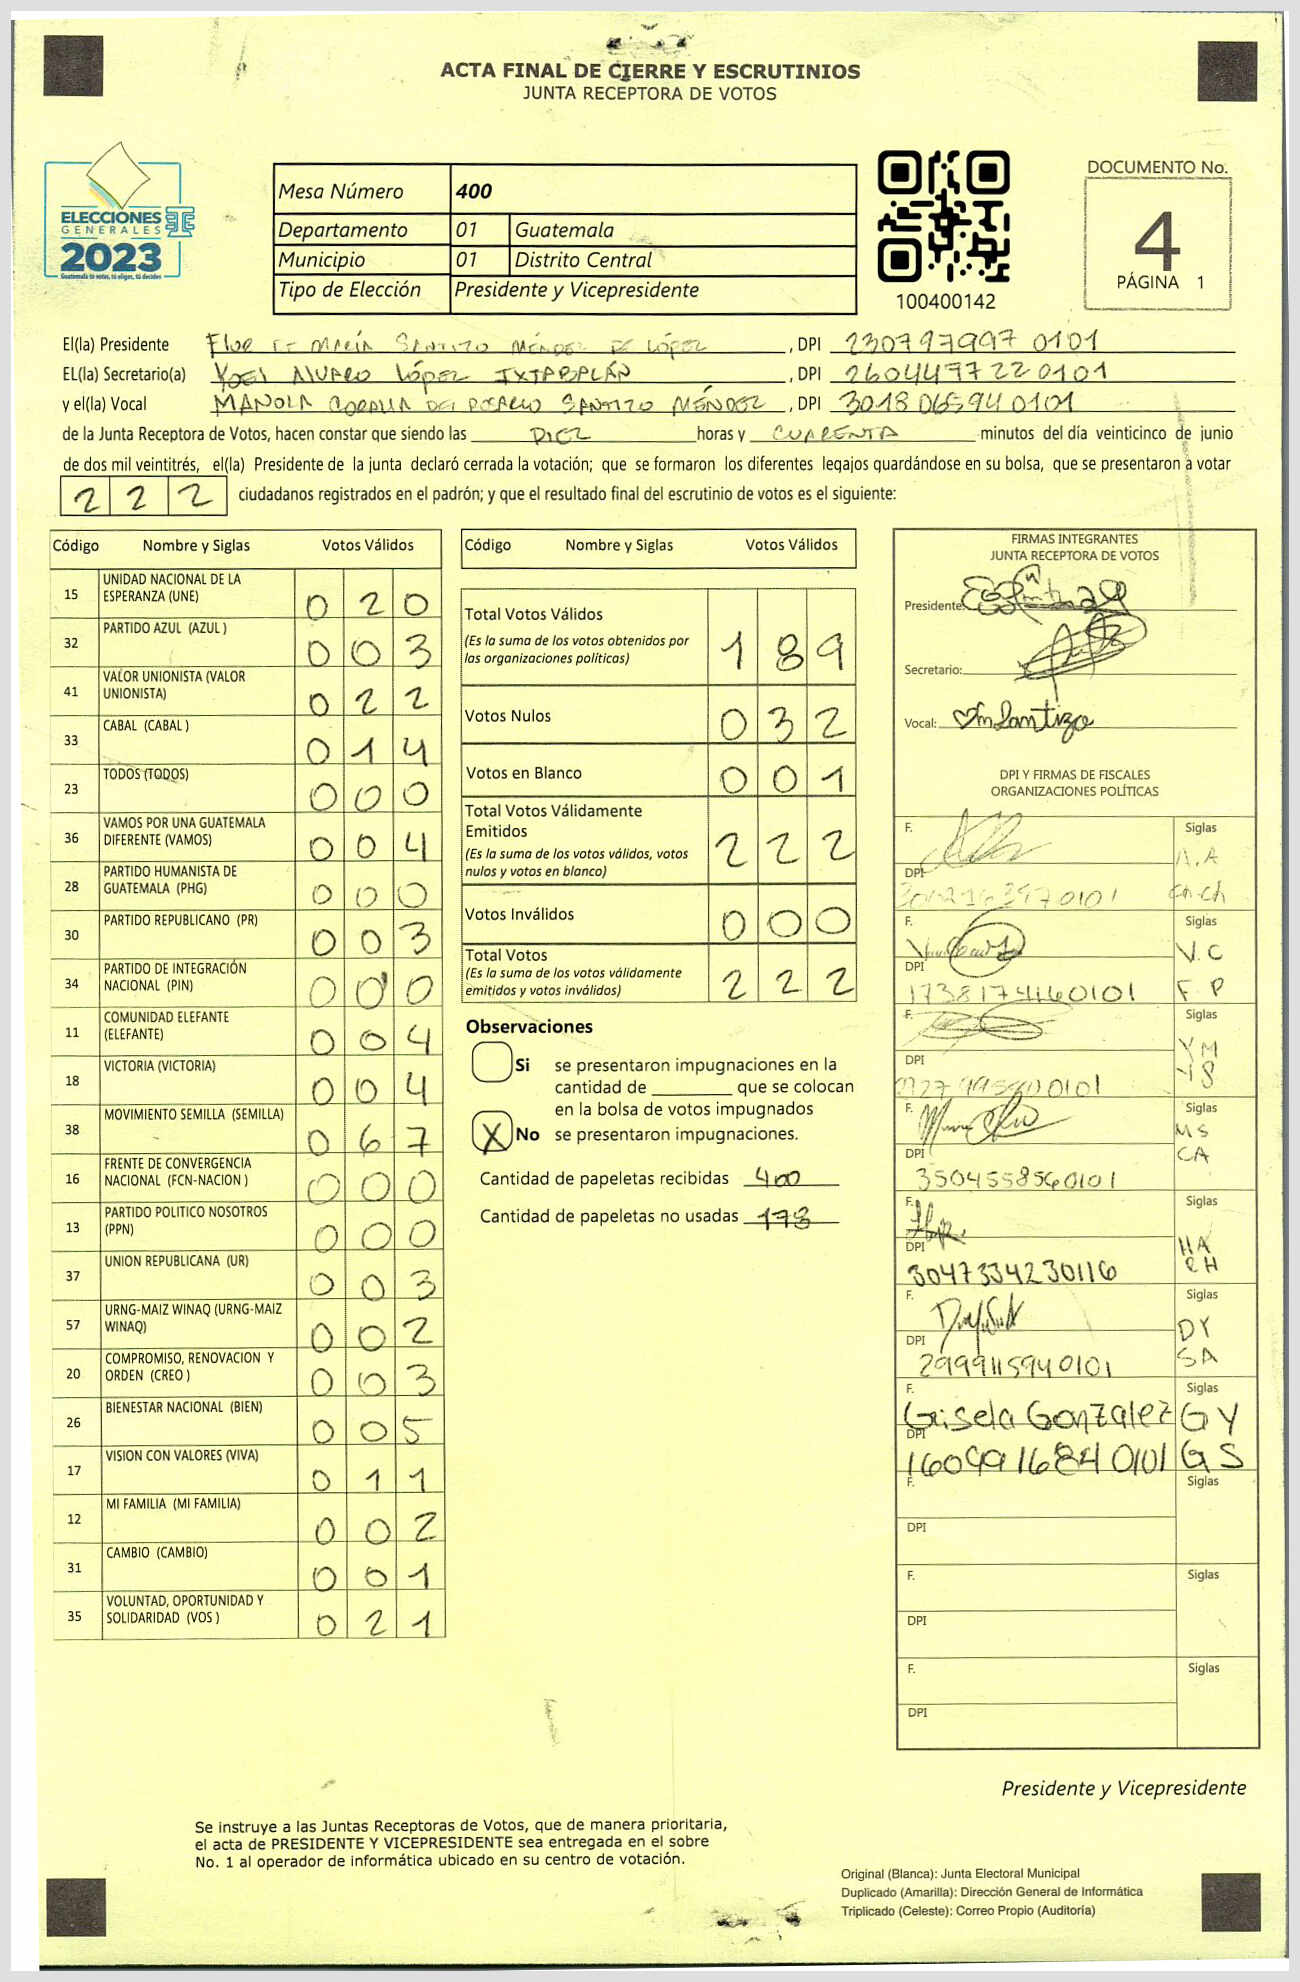 ACTA FINAL DE CIERRE Y ESCRUTINIOS
JUNTA RECEPTORA DE VOTOS
ELECCIONES
GENERALES
2023
Guatemala tú votas, tú eliges, tú decides
Mesa Número 400
Departamento 01 Guatemala
Municipio 01 Distrito Central
Tipo de Elección Presidente y Vicepresidente
100400142
DOCUMENTO No.
4
PÁGINA 1
El(la) Presidente Flor de María Santizo Méndez de López, DPI 230797997 0101
EL(la) Secretario(a) Yoel Alvaro López Ixtabalán, DPI 2604477220101
y el(la) Vocal Manola Coralia del Rosario Santizo Méndez, DPI 3018065940101
de la Junta Receptora de Votos, hacen constar que siendo las Diez horas y cuarenta minutos del día veinticinco de junio
de dos mil veintitrés, el(la) Presidente de la junta declaró cerrada la votación; que se formaron los diferentes legajos guardándose en su bolsa, que se presentaron a votar
222 ciudadanos registrados en el padrón; y que el resultado final del escrutinio de votos es el siguiente:
Código Nombre y Siglas Votos Válidos
15 UNIDAD NACIONAL DE LA ESPERANZA (UNE) 020
32 PARTIDO AZUL (AZUL ) 003
41 VALOR UNIONISTA (VALOR UNIONISTA) 022
33 CABAL (CABAL ) 014
23 TODOS (TODOS) 000
36 VAMOS POR UNA GUATEMALA DIFERENTE (VAMOS) 004
28 PARTIDO HUMANISTA DE GUATEMALA (PHG) 000
30 PARTIDO REPUBLICANO (PR) 003
34 PARTIDO DE INTEGRACIÓN NACIONAL (PIN) 000
11 COMUNIDAD ELEFANTE (ELEFANTE) 004
18 VICTORIA (VICTORIA) 004
38 MOVIMIENTO SEMILLA (SEMILLA) 067
16 FRENTE DE CONVERGENCIA NACIONAL (FCN-NACION ) 000
13 PARTIDO POLITICO NOSOTROS (PPN) 000
37 UNION REPUBLICANA (UR) 003
57 URNG-MAIZ WINAQ (URNG-MAIZ WINAQ) 002
20 COMPROMISO, RENOVACION Y ORDEN (CREO ) 003
26 BIENESTAR NACIONAL (BIEN) 005
17 VISION CON VALORES (VIVA) 011
12 MI FAMILIA (MI FAMILIA) 002
31 CAMBIO (CAMBIO) 001
35 VOLUNTAD, OPORTUNIDAD Y SOLIDARIDAD (VOS ) 021
Código Nombre y Siglas Votos Válidos
Total Votos Válidos
(Es la suma de los votos obtenidos por las organizaciones políticas) 189
Votos Nulos 032
Votos en Blanco 001
Total Votos Válidamente Emitidos
(Es la suma de los votos válidos, votos nulos y votos en blanco) 222
Votos Inválidos 000
Total Votos
(Es la suma de los votos válidamente emitidos y votos inválidos) 222
Observaciones
Si se presentaron impugnaciones en la
cantidad de ________ que se colocan
en la bolsa de votos impugnados
X No se presentaron impugnaciones.
Cantidad de papeletas recibidas 400
Cantidad de papeletas no usadas 178
FIRMAS INTEGRANTES
JUNTA RECEPTORA DE VOTOS
Presidente:
Secretario:
Vocal: Santizo
DPI Y FIRMAS DE FISCALES
ORGANIZACIONES POLÍTICAS
F. Siglas
A.A
DPI
Ch.Ch
F. Siglas
V.C
DPI
1738174160101 F.P
F. Siglas
YM
DPI
F. Siglas
MS
DPI CA
3504558560101
F. Siglas
HA
DPI RH
3047334230116
F. Siglas
DY
DPI SA
2999115940101
F. Siglas
Gisela Gonzalez GY
DPI
1609916840101 GS
F. Siglas
DPI
F. Siglas
DPI
F. Siglas
DPI
Presidente y Vicepresidente
Se instruye a las Juntas Receptoras de Votos, que de manera prioritaria,
el acta de PRESIDENTE Y VICEPRESIDENTE sea entregada en el sobre
No. 1 al operador de informática ubicado en su centro de votación.
Original (Blanca): Junta Electoral Municipal
Duplicado (Amarilla): Dirección General de Informática
Triplicado (Celeste): Correo Propio (Auditoría)